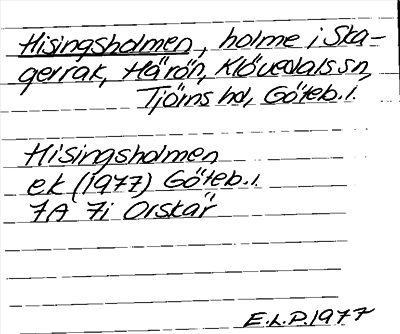 Hisingsholmen, holme i Ska-
gerrak, Härön, Klövedals sn,
Tjörns hd, Göteb.l.
Hisingsholmen
ek (1977) Göteb.l.
7A 7i Orskär
E.L.P.1977